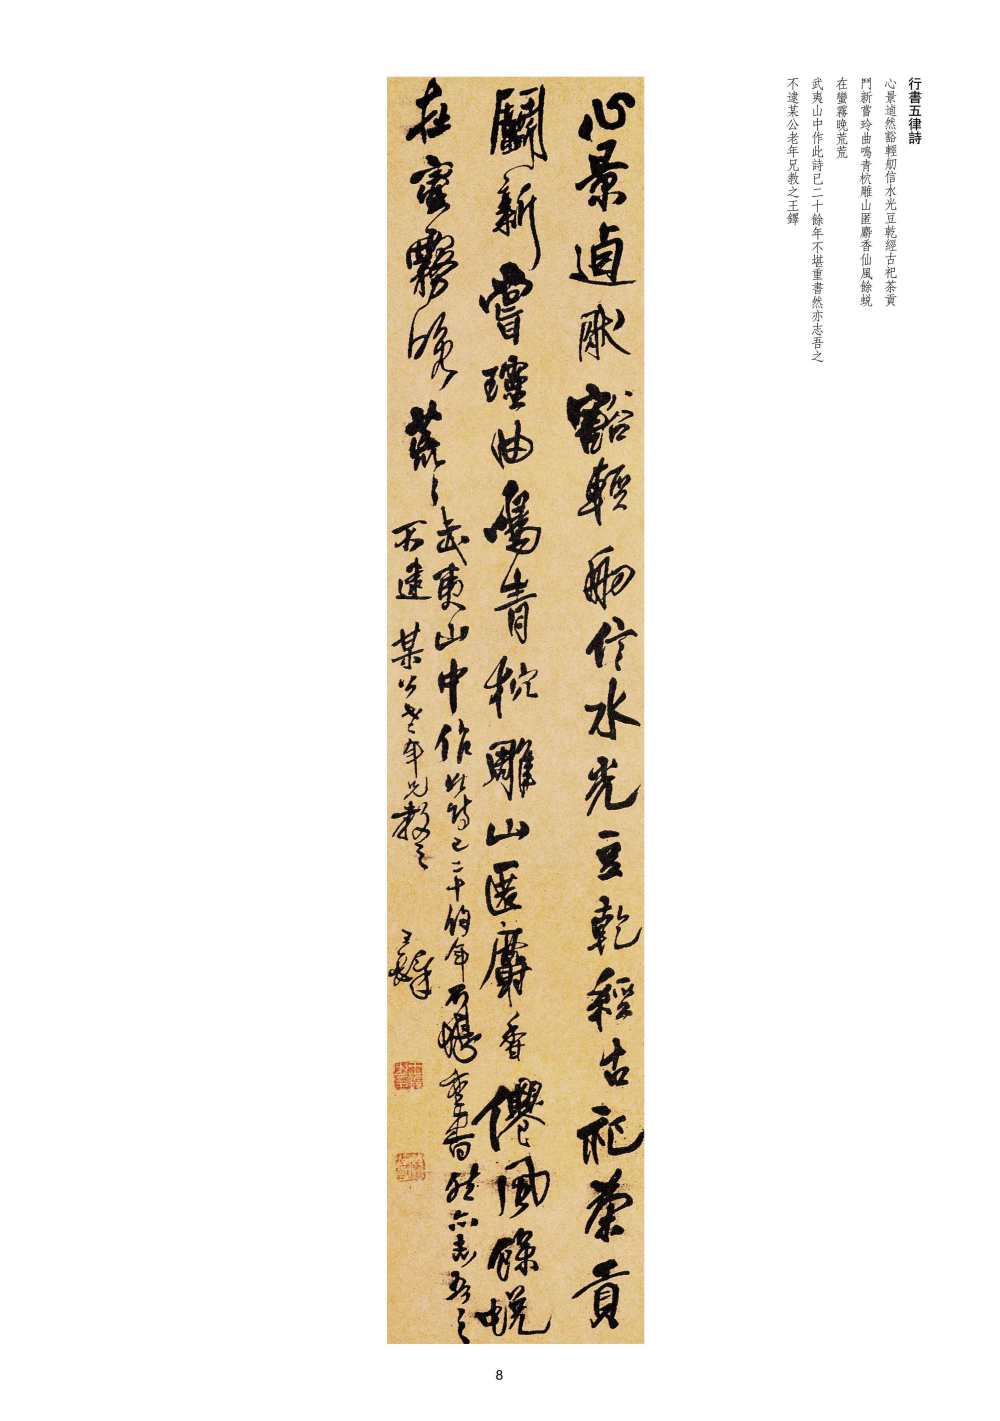 行書五律詩
心景逌然豁輕舠信水光豆乾經古祀茶貢
鬥新嘗玲曲鳴青枕雕山匿麝香仙風餘蛻
在蠻霧晚荒荒
武夷山中作此詩已二十餘年不堪重書然亦志吾之
不逮某公老年兄教之王鐸
心景逌然豁輕舠信水光豆乾經古祀茶貢
鬭新嘗曲鳴青枕雕山匿麝香僊風餘蛻
在蠻霧晚荒〻武夷山中作此詩已二十餘年不堪重書然亦志吾之
不逮某公老年兄教之王鐸
8